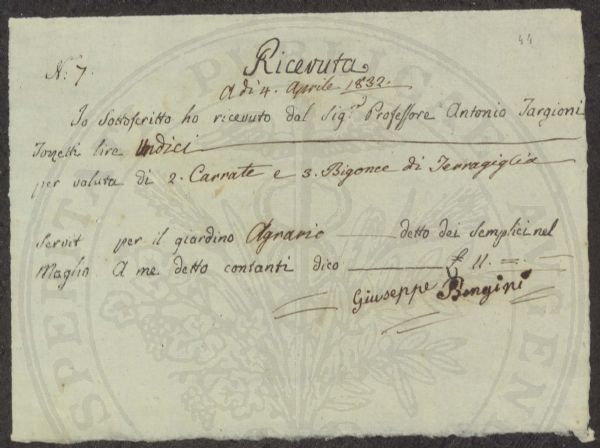 44
N: 7.
Ricevuta
A di 4. Aprile 1832.
Io Sottoscritto ho ricevuto dal Sig.r Professore Antonio Targioni
Tozzetti lire Undici
per valuta di 2. Carrate e 3. Bigonce di Terragiglia
Servit per il giardino Agrario detto dei Semplici nel
Maglio A me detto contanti dico £ 11. =
Giuseppe Bongini